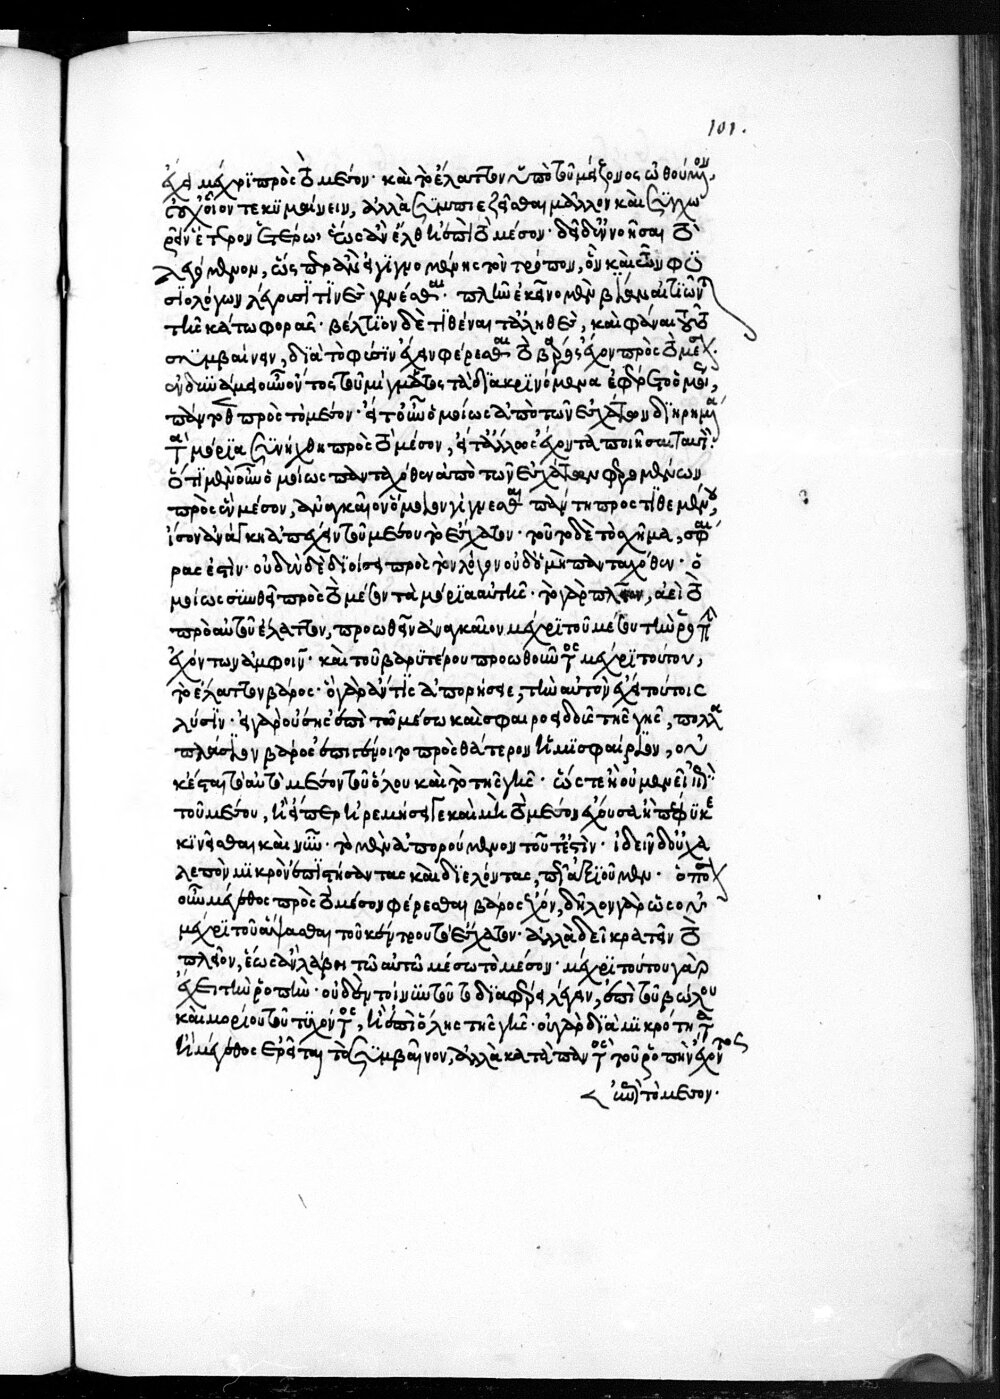 101.
ἔχει μέχρι πρὸς τὸ μέσον· καὶ τὸ ἔλαττον ὑπὸ τοῦ μείζονος ὠθούμενον,
οὐχ οἷόν τε κυμαίνειν, ἀλλὰ συμπιέζεσθαι μᾶλλον καὶ συγχω
ρεῖν ἕτερον ἑτέρω, ἕως ἂν ἔλθη ἐπὶ τὸ μέσον· δεῖ δὲ νοῆσαι τὸ
λεγόμενον, ὥσπερ ἂν εἰ γιγνομένης τὸν τρόπον, ὃν καὶ τῶν φυ
σιολόγων λέγουσί τινες γενέσθαι· πλὴν ἐκεῖνοι μὲν βίαν αἰτιῶνται
τῆς κάτω φορᾶς· βέλτιον δὲ τιθέναι τἀληθὲς, καὶ φάναι τοῦτο
συμβαίνειν, διὰ τὸ φύσιν ἔχειν φέρεσθαι τὸ βάρος ἔχον πρὸς τὸ μέσον.
ἐν δυνάμει οὖν ὄντος τοῦ μίγματος τὰ διακρινόμενα ἐφέρετο ὁμοίως,
πάντοθεν πρὸς τὸ μέσον· εἴτ' οὖν ὁμοίως ἀπὸ τῶν ἐσχάτων διηρημένα
τὰ μόρια συνήχθη πρὸς τὸ μέσον, εἴτ' ἄλλως ἔχοντα ποιήσει ταυτό.
ὅτι μὲν οὖν ὁμοίως πανταχόθεν ἀπὸ τῶν ἐσχάτων φερομένων
πρὸς ἓν μέσον, ἀναγκαῖον ὅμοιον γίγνεσθαι πάντη προστιθεμένου,
ἴσον ἀνάγκη ἀπέχειν τοῦ μέσου τὸ ἔσχατον· τοῦτο δὲ τὸ σχῆμα, σφαί
ρας ἐστίν· οὐδὲν δὲ διοίσει πρὸς τὸν λόγον οὐδ' εἰ μὴ πανταχόθεν ὁ
μοίως συνθεῖ πρὸς τὸ μέσον τὰ μόρια αὐτῆς· τὸ γὰρ πλεῖον, ἀεὶ τὸ
πρὸ αὐτοῦ ἔλαττον, προωθεῖν ἀναγκαῖον μέχρι τοῦ μέσου τὴν ῥοπὴν
ἐχόντων ἀμφοῖν· καὶ τοῦ βαρυτέρου προωθοῦντος μέχρι τούτου,
τὸ ἔλαττον βάρος· ὃ γὰρ ἄν τις ἀπορήσειε, τὴν αὐτὴν ἔχει τούτοις
λύσιν· εἰ γὰρ οὔσης ἐπὶ τοῦ μέσω καὶ σφαιροειδοῦς τῆς γῆς, πολλα
πλάσιον βάρος ἐπιγένοιτο πρὸς θάτερον ἡμισφαίριον, οὐ
κ ἔσται τὸ αὐτὸ μέσον τοῦ ὅλου καὶ τὸ τῆς γῆς· ὥστε ἢ οὐ μενεῖ ἐπὶ
τοῦ μέσου, ἢ εἴπερ ἠρεμήσει γε καὶ μὴ τὸ μέσον ἔχουσα ἧ πέφυκε
κινεῖσθαι καὶ νῦν· τὸ μὲν ἀπορούμενον τοῦτ' ἐστίν· ἰδεῖν δ' οὐ χα
λεπὸν μικρὸν ἐπιτείναντας καὶ διελόντας, πῶς ἀξιοῦμεν· ὁποσ
οῦν μέγεθος πρὸς τὸ μέσον φέρεσθαι βάρος ἔχον, δῆλον γὰρ ὡς οὐ
μέχρι τοῦ ἅψασθαι τοῦ κέντρου τὸ ἔσχατον· ἀλλὰ δεῖ κρατεῖν τὸ
πλεῖον, ἕως ἂν λάβοι τῶ αὐτῶ μέσω τὸ μέσον· μέχρι τούτου γὰρ
ἔχει τὴν ῥοπὴν· οὐδὲν τοίνυν τοῦτο διαφέρει λέγειν, ἐπὶ τοῦ βώλου
καὶ μορίου τοῦ τυχόντος, ἢ ἐπὶ ὅλης τῆς γῆς· οὐ γὰρ διὰ μικρότητα
ἢ μέγεθος εἴρηται τὸ συμβαῖνον, ἀλλὰ κατὰ παντὸς τοῦ ῥοπὴν ἔχοντος
ἐπὶ τὸ μέσον.